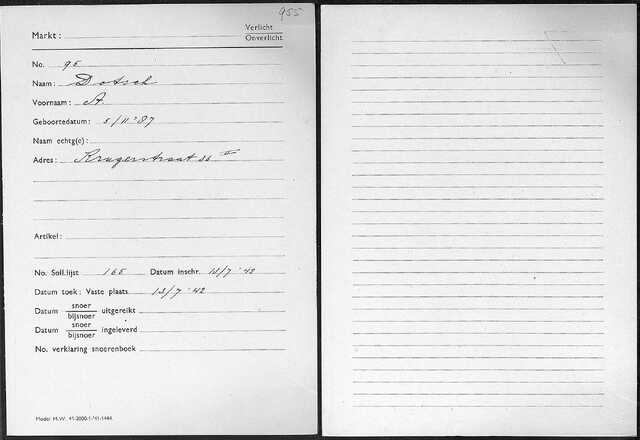 955
Markt: Verlicht
Onverlicht
No. 95
Naam: Dotsch
Voornaam: A.
Geboortedatum: 5/11 '87
Naam echtg(e):
Adres: Krugerstraat 36 II
Artikel:
No. Soll.lijst 165 Datum inschr. 13/7 '42
Datum toek: Vaste plaats 13/7 '42
Datum snoer
bijsnoer uitgereikt
Datum snoer
bijsnoer ingeleverd
No. verklaring snoerenboek
Model M.W. 41-2000-1-'41-1444.